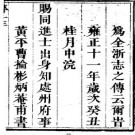 為全浙志之傳云爾旹
雍正十一年歲次癸丑
桂月中浣
賜同進士出身知處州府事
黃平曹掄彬炳菴甫書